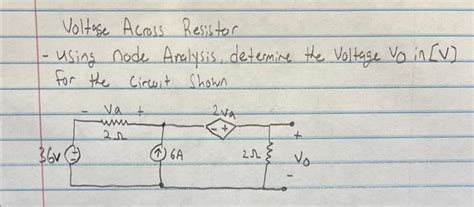 Voltage Across Resistor
- Using node Analysis, determine the Voltage Vo in [V]
For the Circuit Shown
- Va +
2Va
2Ω
- +
+
36v
6A
2Ω
Vo
-